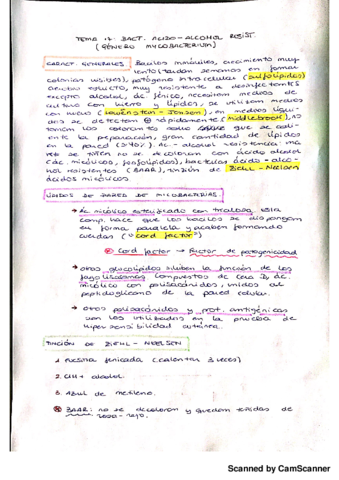 TEMA 17. BACT. ACIDO-ALCOHOL RESIST.
(GÉNERO MYCOBACTERIUM)
CARACT. GENERALES Bacilos inmóviles, crecimiento muy
lento (tardan semanas en formar
colonias visibles), patógeno intracelular (sulfolípidos)
aerobio estricto, muy resistente a desinfectantes
excepto alcohol, ác. fénico, necesitan medios de
cultivo con huevo y lípidos, se utilizan medios
con huevo (Löwenstein-Jensen), en medios líqui-
dos se detectan ⊕ rápidamente (middlebrook), no
toman los colorantes salvo que se cali-
ente la preparación, gran cantidad de lípidos
en la pared (>40%). Ac-alcohol resistencia: una
vez se tiñen no se decoloran con ácido alcohol
(ác. micólicos, fosfolípidos), bacterias ácido-alco-
hol resistentes (BAAR), tinción de ZIEHL-NEELSEN
ácidos micólicos.
LÍPIDOS DE PARED DE MICOBACTERIAS
→ Ác micólico esterificado con trealosa esta
comp. hace que los bacilos se dispongan
en forma paralela y acaben formando
cuerdas (☺ cord factor)
Cord factor → Factor de patogenicidad
→ otros glucolípidos inhiben la función de los
fagolisosomas compuestos de cera D, ác
micólico con polisacáridos, unidos al
peptidoglicano de la pared celular.
→ otros polisacáridos y prot. antigénicas
son las utilizadas en la prueba de
hipersensibilidad cutánea.
TINCIÓN DE ZIEHL-NEELSEN
1. Fucsina fenicada (calentar 3 veces)
2. ClH + alcohol.
3. Azul de metileno.
BAAR: no se decoloran y quedan teñidas de
Scanned by CamScanner